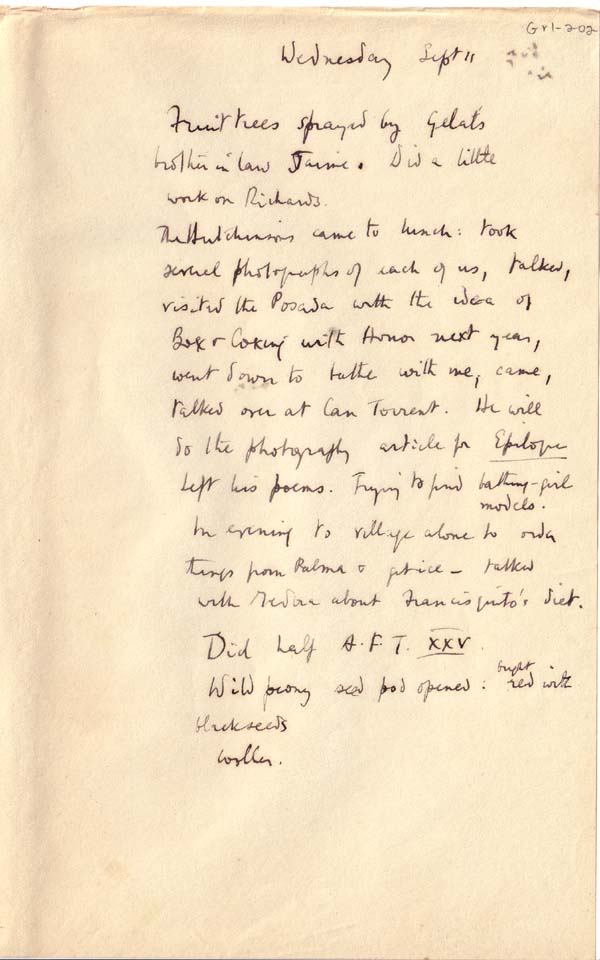 Gr1-202
Wednesday Sept 11
Fruit trees sprayed by Gelats
brother in law Jaime. Did a little
work on Richards.
The Hutchinsons came to lunch: took
several photographs of each of us, talked,
visited the Posada with the idea of
Box & Coxing with Honor next year,
went down to bathe with me, came,
talked over at Can Torrent. He will
do the photography article for Epilogue
Left his poems. Trying to find bathing-girl
models.
In evening to village alone to order
things from Palma & get ice - talked
with Medora about Francisquito's diet.
Did half A.F.T. XXV.
Wild peony seed pod opened: bright red with
black seeds